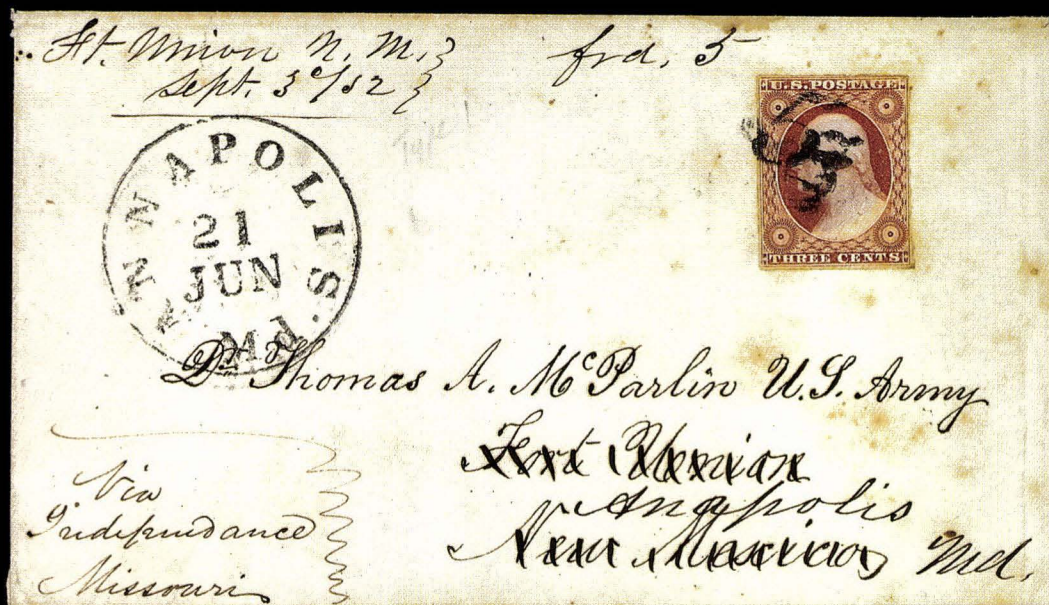 Ft. Union N. M.
Sept. 3d/52
frd. 5
U.S. POSTAGE
THREE CENTS
ANNAPOLIS. Md.
21
JUN
Dr. Thomas A. McParlin U.S. Army
Fort Union
Anapolis
New Mexico Md.
Via
Independance
Missouri